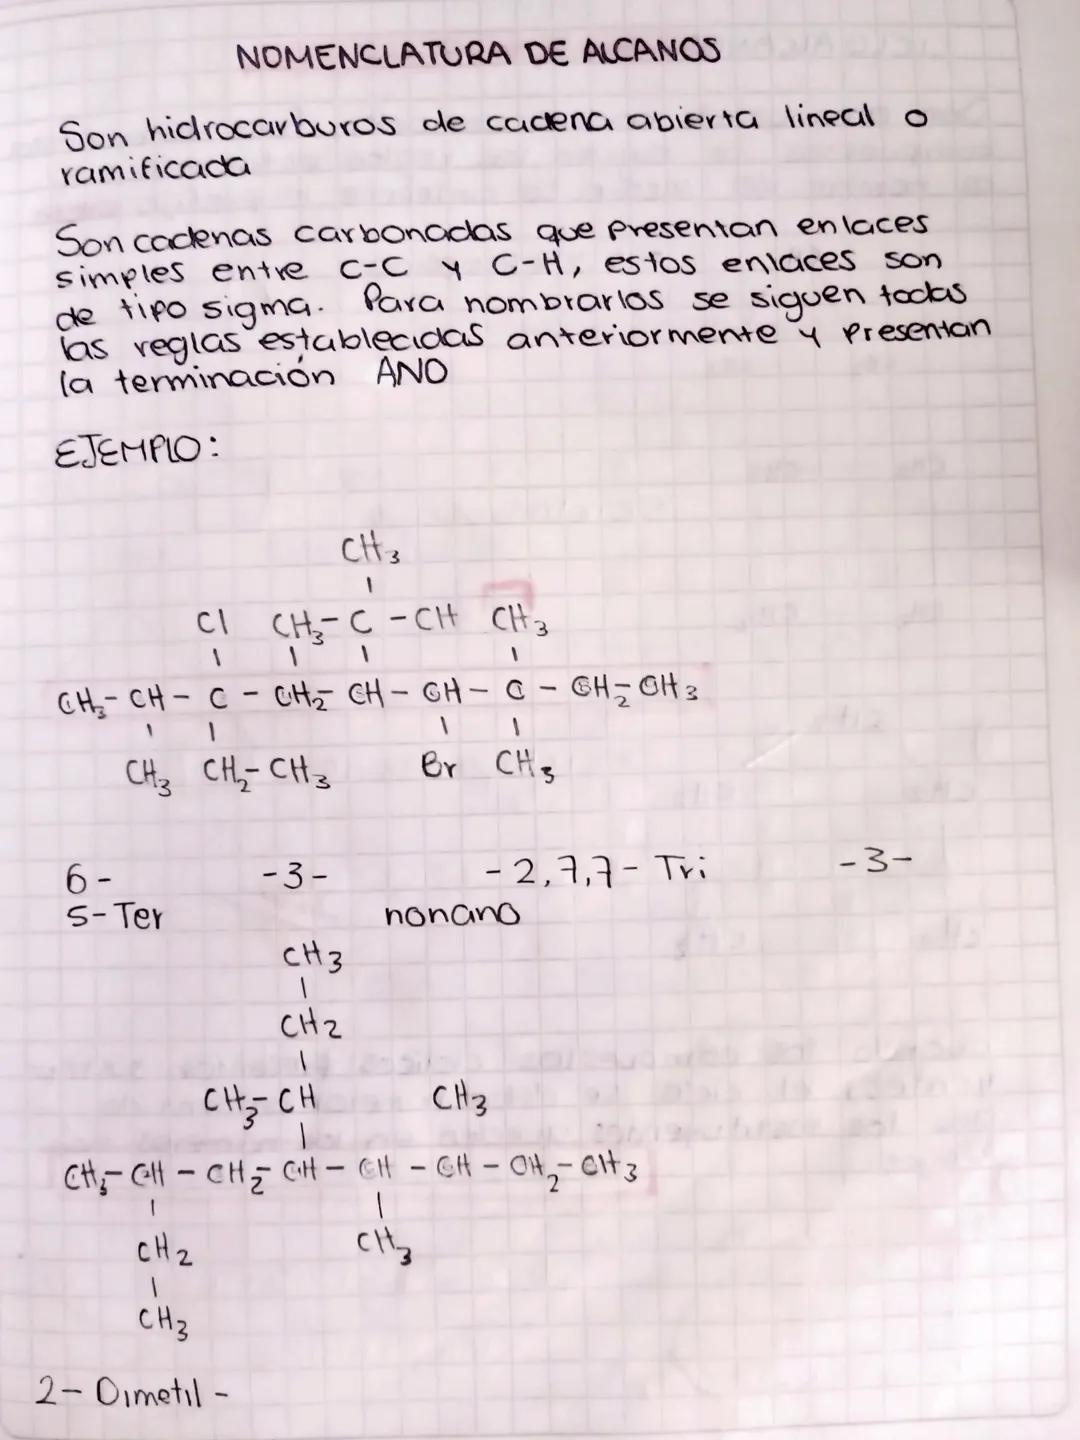 NOMENCLATURA DE ALCANOS
Son hidrocarburos de cadena abierta lineal o
ramificada
Son cadenas carbonadas que presentan enlaces
simples entre C-C y C-H, estos enlaces son
de tipo sigma. Para nombrarlos se siguen todas
las reglas establecidas anteriormente y presentan
la terminación ANO
EJEMPLO:
CH3
Cl CH3-C-CH CH3
CH3-CH-C-CH2-CH-CH-C-CH2-CH3
CH3 CH2-CH3 Br CH3
6- -3- -2,7,7- Tri -3-
5-Ter nonano
CH3
CH2
CH3-CH CH3
CH3-CH-CH2-CH-CH-CH-CH2-CH3
CH2 CH3
CH3
2-Dimetil-